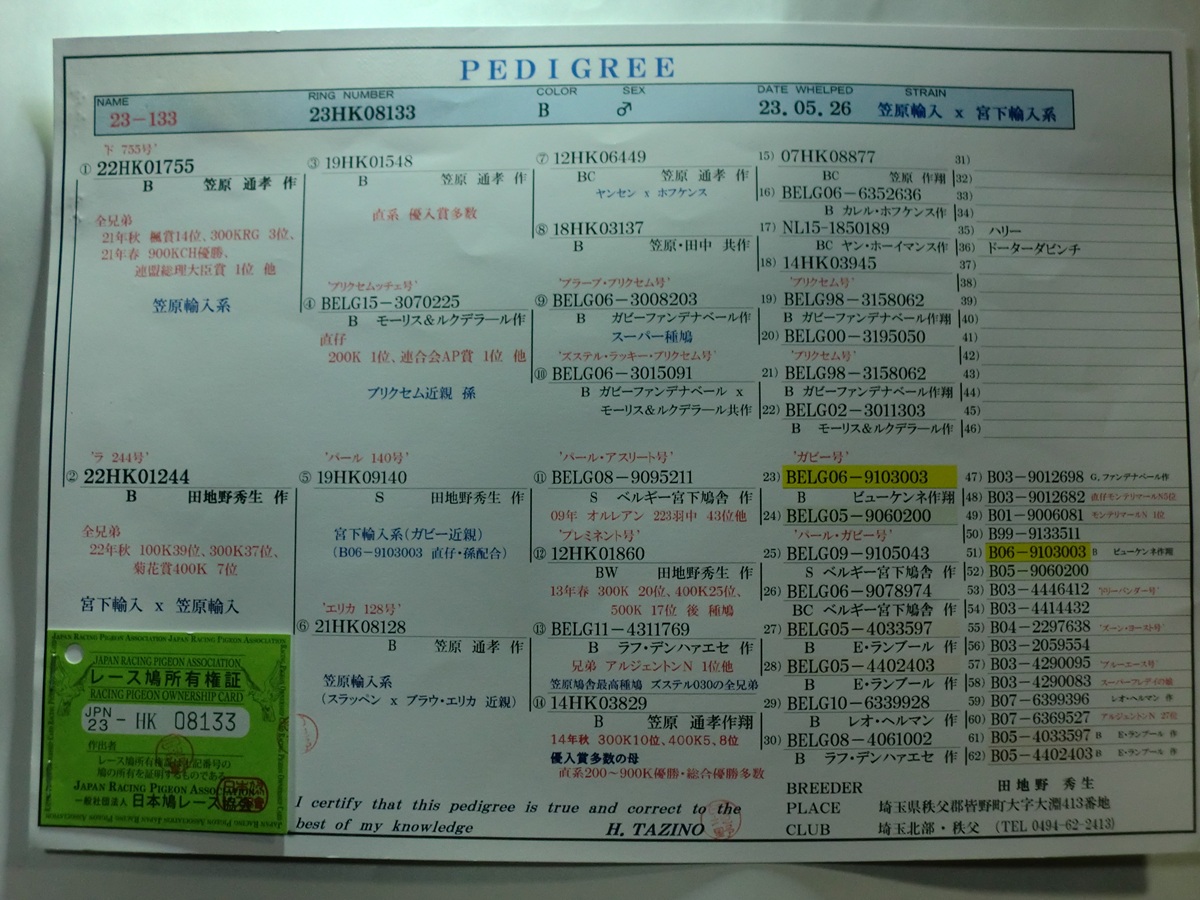 PEDIGREE
NAME
23-133
RING NUMBER
23HK08133
COLOR
B
SEX
♂
DATE WHELPED
23.05.26
STRAIN
笠原輸入 x 宮下輸入系
755号'
① 22HK01755
B 笠原 通孝 作
全兄弟
21年秋 楓賞14位、300KRG 3位、
21年春 900KCH優勝、
連盟総理大臣賞 1位 他
笠原輸入系
'ラ 244号'
② 22HK01244
B 田地野秀生 作
全兄弟
22年秋 100K39位、300K37位、
菊花賞400K 7位
宮下輸入 x 笠原輸入
③ 19HK01548
B 笠原 通孝 作
直系 優入賞多数
'プリクセムッチェ号'
④ BELG15-3070225
B モーリス&ルクデラール作
直仔
200K 1位、連合会AP賞 1位 他
プリクセム近親 孫
'パール 140号'
⑤ 19HK09140
S 田地野秀生 作
宮下輸入系(ガビー近親)
(B06-9103003 直仔・孫配合)
'エリカ 128号'
⑥ 21HK08128
B 笠原 通孝 作
笠原輸入系
(スラッペン x ブラウ・エリカ 近親)
⑦ 12HK06449
BC 笠原 通孝 作
ヤンセン x ホフケンス
⑧ 18HK03137
B 笠原・田中 共作
'ブラーブ・プリクセム号'
⑨ BELG06-3008203
B ガビーファンデナベール作
スーパー種鳩
'ズステル・ラッキー・プリクセム号'
⑩ BELG06-3015091
B ガビーファンデナベール x
モーリス&ルクデラール共作
'パール・アスリート号'
⑪ BELG08-9095211
S ベルギー宮下鳩舎 作
09年 オルレアン 223羽中 43位他
'プレミネント号'
⑫ 12HK01860
BW 田地野秀生 作
13年春 300K 20位、400K25位、
500K 17位 後 種鳩
⑬ BELG11-4311769
B ラフ・デンハァエセ 作
兄弟 アルジェントンN 1位他
笠原鳩舎最高種鳩 ズステル030の全兄弟
⑭ 14HK03829
B 笠原 通孝作翔
14年秋 300K10位、400K5、8位
優入賞多数の母
直系200~900K優勝・総合優勝多数
15) 07HK08877
BC 笠原 作翔
16) BELG06-6352636
B カレル・ホフケンス作
17) NL15-1850189
BC ヤン・ホーイマンス作
18) 14HK03945
'プリクセム号'
19) BELG98-3158062
B ガビーファンデナベール作翔
20) BELG00-3195050
'プリクセム号'
21) BELG98-3158062
B ガビーファンデナベール作翔
22) BELG02-3011303
B モーリス&ルクデラール作
'ガビー号'
23) BELG06-9103003
B ビューケンネ作翔
24) BELG05-9060200
'パール・ガビー号'
25) BELG09-9105043
S ベルギー宮下鳩舎 作
26) BELG06-9078974
BC ベルギー宮下鳩舎 作
27) BELG05-4033597
B E・ランブール 作
28) BELG05-4402403
B E・ランブール 作
29) BELG10-6339928
B レオ・ヘルマン 作
30) BELG08-4061002
B ラフ・デンハァエセ 作
31)
32)
33)
34)
35) ハリー
36) ドーターダビンチ
37)
38)
39)
40)
41)
42)
43)
44)
45)
46)
47) B03-9012698 G.ファンデナベール作
48) B03-9012682 直仔モンテリマールN5位
49) B01-9006081 モンテリマールN 1位
50) B99-9133511
51) B06-9103003 B ビューケンネ作翔
52) B05-9060200
53) B03-4446412
54) B03-4414432
55) B04-2297638 'ズーン・ヨースト号'
56) B03-2059554
57) B03-4290095 'ブルーエース号'
58) B03-4290083 スーパーフレディの娘
59) B07-6399396 レオ・ヘルマン 作
60) B07-6369527 アルジェントンN 27位
61) B05-4033597 B E・ランブール 作
62) B05-4402403 B E・ランブール 作
JAPAN RACING PIGEON ASSOCIATION JAPAN RACING PIGEON ASSOCIATION
JAPAN RACING PIGEON ASSOCIATION
レース鳩所有権証
RACING PIGEON OWNERSHIP CARD
JPN 23 - HK 08133
作出者
レース鳩所有権証は上記番号の
鳩の所有を証明するものである
JAPAN RACING PIGEON ASSOCIATION
一般社団法人 日本鳩レース協会
I certify that this pedigree is true and correct to the
best of my knowledge H. TAZINO
BREEDER 田地野 秀生
PLACE 埼玉県秩父郡皆野町大字大淵413番地
CLUB 埼玉北部・秩父 (TEL 0494-62-2413)